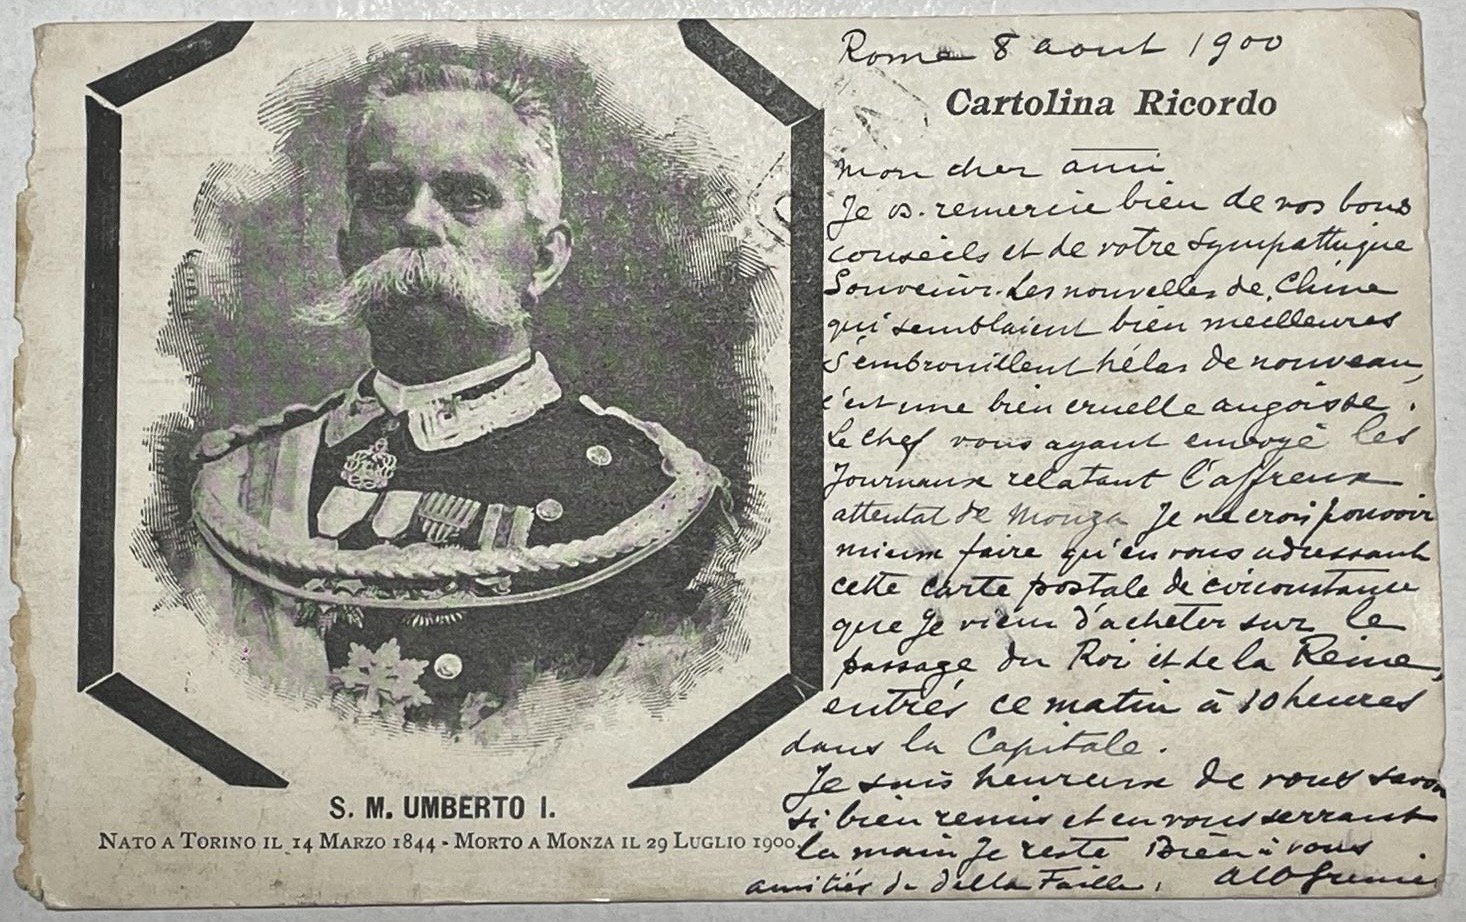 Rome 8 aout 1900
Cartolina Ricordo
Mon cher ami
Je vs. remercie bien de vos bons
conseils et de votre sympathique
Souvenir. Les nouvelles de Chine
qui semblaient bien meilleures
s'embrouillent hélas de nouveau,
c'est une bien cruelle angoisse.
Le Chef vous ayant envoyé les
Journaux relatant l'affreux
attentat de Monza Je ne crois pouvoir
mieux faire qu'en vous adressant
cette carte postale de circonstance
que Je viens d'acheter sur le
passage du Roi et de la Reine,
entrés ce matin à 10 heures
dans la Capitale.
Je suis heureux de vous savoir
si bien remis et en vous serrant
la main Je reste Bien à vous
amitiés de della Faille.
S. M. UMBERTO I.
NATO A TORINO IL 14 MARZO 1844 - MORTO A MONZA IL 29 LUGLIO 1900.